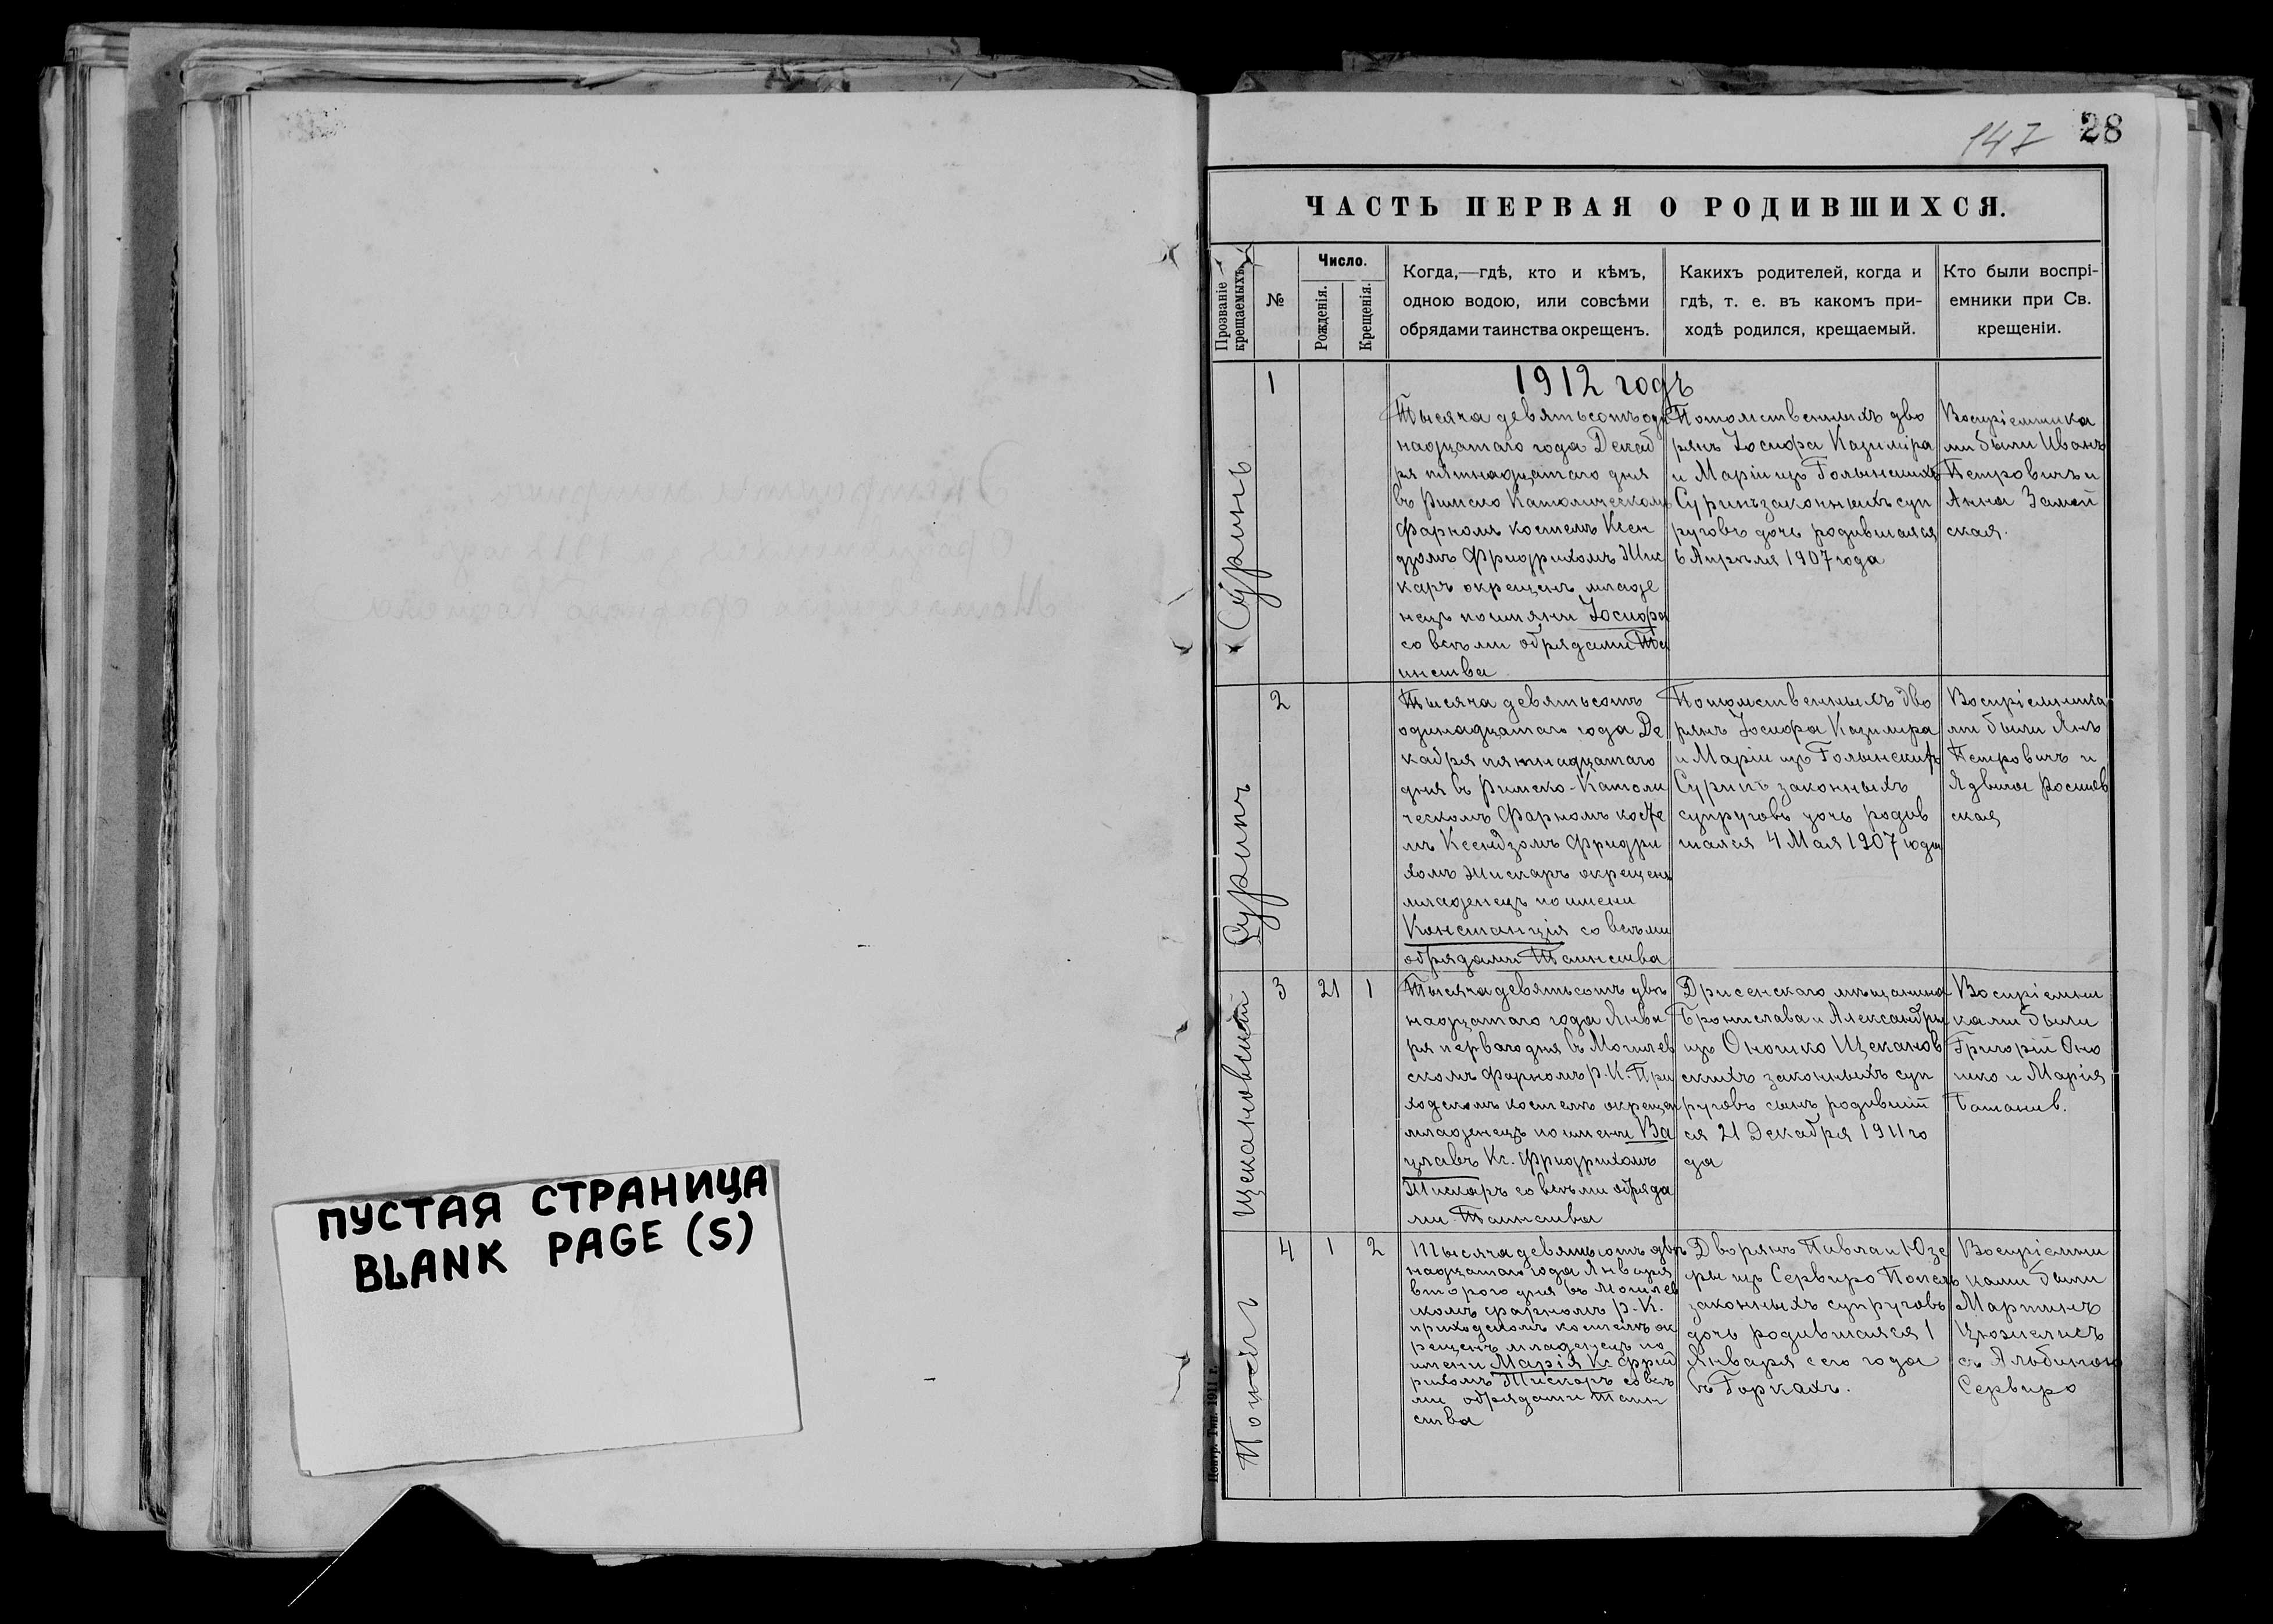 ПУСТАЯ СТРАНИЦА
BLANK PAGE (S)
147 28
ЧАСТЬ ПЕРВАЯ О РОДИВШИХСЯ.
Прозваніе
крещаемыхъ
№
Число.
Рожденія.
Крещенія.
Когда,—гдѣ, кто и кѣмъ,
одною водою, или совсѣми
обрядами таинства окрещенъ.
Какихъ родителей, когда и
гдѣ, т. е. въ какомъ при-
ходѣ родился, крещаемый.
Кто были воспрі-
емники при Св.
крещеніи.
1912 годъ
Суринъ
1
Тысяча девятьсотъ оди
надцатаго года Декаб
ря пятнадцатаго дня
въ Римско Католическомъ
Фарномъ костелѣ Ксен
дзомъ Фридрихомъ Жис
каръ окрещенъ младе
нецъ по имени Іосифа
со всѣми обрядами Та
инства
Потомственныхъ дво
рянъ Іосифа Казиміра
и Маріи изъ Голынскихъ
Суринъ законныхъ суп
руговъ дочь родившаяся
6 Апрѣля 1907 года
Воспріемника
ми были Иванъ
Петровичъ и
Анна
ская.
Суринъ
2
Тысяча девятьсотъ
одинадцатаго года Де
кабря пятнадцатаго
дня въ Римско-Католи
ческомъ Фарномъ косте
лѣ Ксендзомъ Фридри
хомъ Жискаръ окрещенъ
младенецъ по имени
Констанція со всѣми
обрядами Таинства
Потомственныхъ дво
рянъ Іосифа Казиміра
и Маріи изъ Голынскихъ
Суринъ законныхъ
супруговъ дочь родив
шаяся 4 Мая 1907 года
Воспріемника
ми были Янъ
Петровичъ и
Ядвига
ская
Щекановскій
3 21 1
Тысяча девятьсотъ двѣ
надцатаго года Янва
ря перваго дня въ Могилев
скомъ Фарномъ Р.-К. При
ходскомъ костелѣ окрещен
младенецъ по имени Ва
цлавъ Кс. Фридрихомъ
Жискаръ со всѣми обряда
ми Таинства
Дрисенскаго мѣщанина
Бронислава и Александры
изъ Оношко Щеканов
скихъ законныхъ суп
руговъ сынъ родившій
ся 21 Декабря 1911 го
да
Воспріемни
ками были
Григорій Оно
шко и Марія
4 1 2
Тысяча девятьсотъ двѣ
надцатаго года Января
второго дня въ Могилев
скомъ фарномъ Р.-К.
приходскомъ костелѣ ок
рещенъ младенецъ по
имени Марія Кс. Фрид
рихомъ Жискаръ со всѣ
ми обрядами Таин
ства
Дворянъ Павла и Юзе
фы изъ Сервиро
законныхъ супруговъ
дочь родившаяся 1
Января сего года
въ Горкахъ.
Воспріемни
ками были
Мартинъ
съ Альбиною
Сервиро
Центр. Тип. 1911 г.